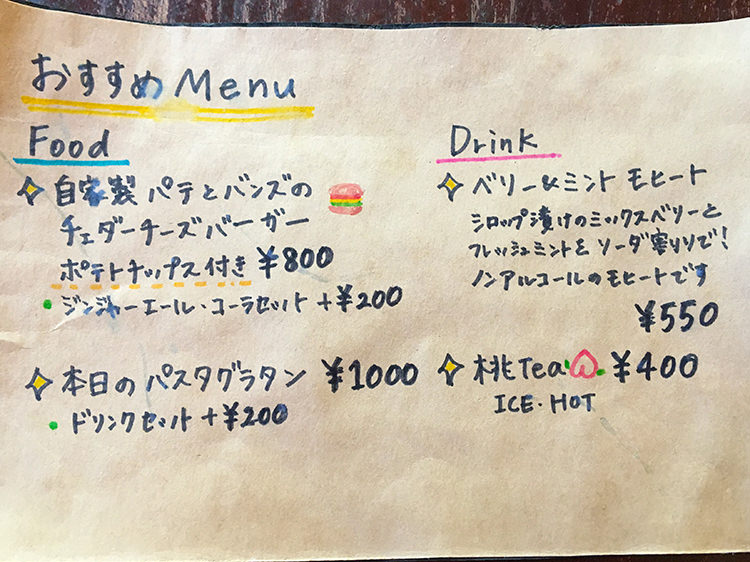 おすすめ Menu
Food
自家製 パテとバンズの
チェダーチーズバーガー
ポテトチップス付き ¥800
・ジンジャーエール・コーラセット +¥200
本日の パスタグラタン ¥1000
・ドリンクセット +¥200
Drink
ベリー&ミント モヒート
シロップ漬けのミックスベリーと
フレッシュミントを ソーダ割りで!
ノンアルコールのモヒートです
¥550
桃Tea ¥400
ICE・HOT